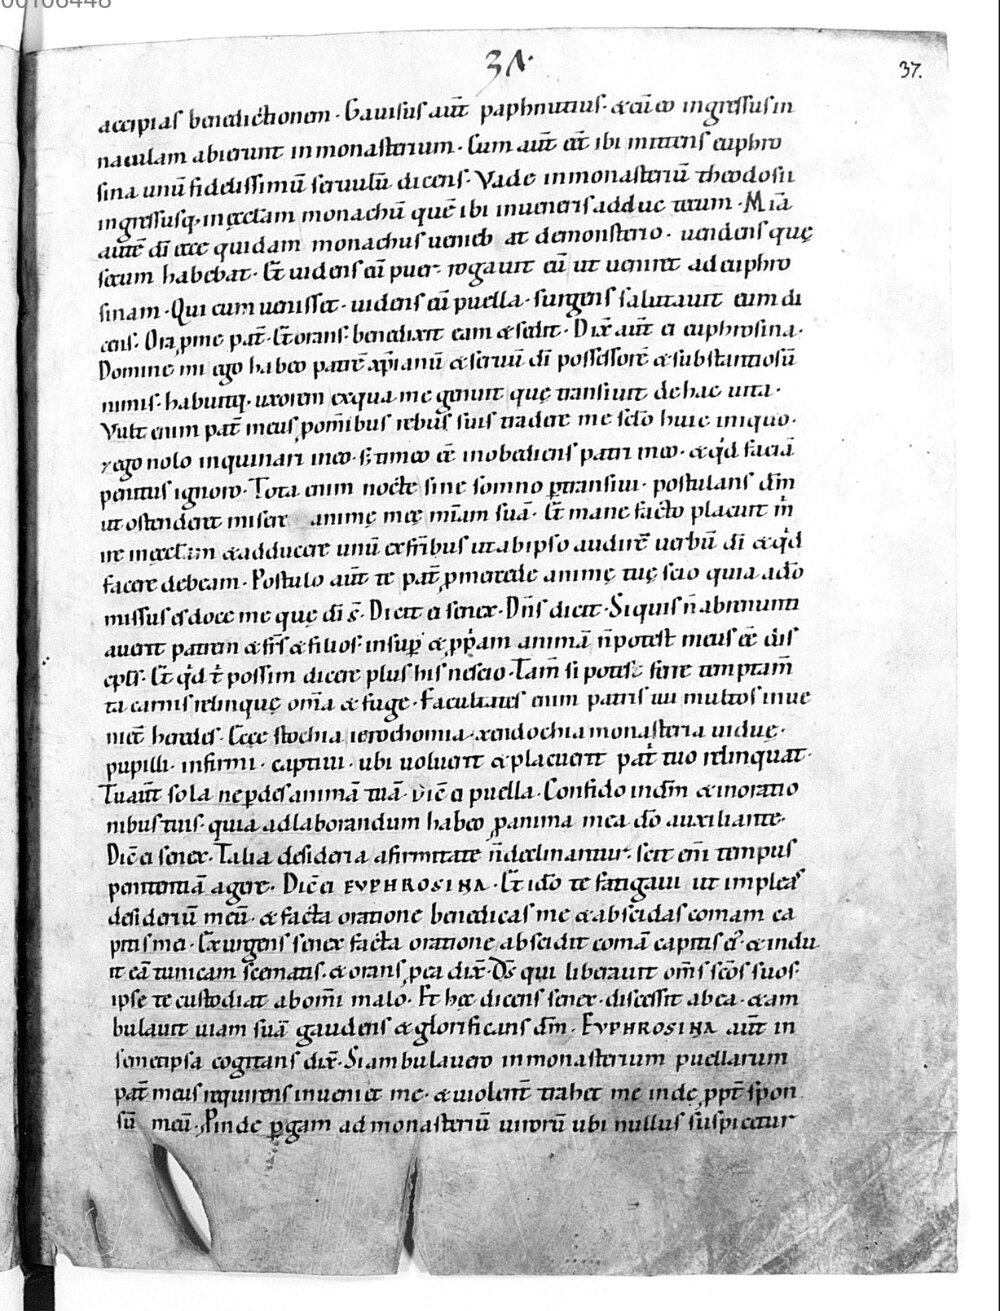 00106448
37.
37.
accipias benedictionem· Gauisus aut̄ paphnutius· & cū eo ingressus in
nauculam abierunt in monasterium· Cum aut̄ eēt ibi mittens euphro
sina unū fidelissimū seruulū dicens· Vade in monasteriū theodosii
ingressusq; in ęcclam monachū quē ibi inueneris adduc tecum· Mia
autē dī ecce quidam monachus uenieb at de monsterio· uendens quę
secum habebat· Et uidens eū puer rogauit eū ut ueniret ad euphro
sinam· Qui cum uenisset· uidens eū puella· surgens salutauit eum di
cens· Ora pme pat̄· Et orans· benedixit eam & sedit· Dix̄ aut̄ ei euphrosina·
Domine mi ego habeo patrē xp̄ianū & seruū dī possessorē & substantiosū
nimis· habuitq; uxorem ex qua me genuit quę transiuit de hac uita·
Vult enim pat̄ meus pom̄ibus rebus suis tradere me sc̄lo huic iniquo·
& ego nolo inquinari in eo· s; timeo eē inobediens patri meo· & qd̄ faciā
penitus ignoro· Tota enim nocte sine somno ptransiui· postulans dm̄
ut ostenderet misere animę meę mīam suā· Et mane facto placuit m̄
ire in ęcclam & adducere unū ex fribus ut ab ipso audirē uerbū dī & qd̄
facere debeam· Postulo aut̄ te pat̄ pmercede animę tuę scio quia a dō
missus es doce me quę dī s̄· Dicit ei senex· Dn̄s dicit· Si quis n̄ abrenunti
auerit patrem & frs̄ & filios· insup & pp̄am animā n̄ potest meus eē dis
cpls̄· Et qd̄ t̄ possim dicere plus his nescio· Tam̄ si potes ferre temptam̄
ta carnis relinquę om̄a & fuge· Facultates enim patris tui multos inue
niēt heredes· Ecce ptochia ierochomia· xenodochia monasteria uiduę·
pupilli· infirmi· captiui· ubi uoluerit & placuerit pat̄ tuo relinquat·
Tu aut̄ sola ne pdes animā tuā· Dic̄ ei puella· Confido in dm̄ & in oratio
nibus tuis· quia ad laborandum habeo panima mea dō auxiliante·
Dic̄ ei senex· Talia desideria a firmitate n̄ declinantur· scit em̄ tempus
penitentiā agere· Dic̄ ei EVPHROSINA· Et idō te fatigaui ut impleas
desideriū meū· & facta oratione benedicas me & abscidas comam ca
pitis mei· Exurgens senex facta oratione abscidit comā capitis ei· & indu
it eā tunicam scematis· & orans pea dix̄· Ds̄ qui liberauit om̄s sc̄os suos·
ipse te custodiat ab om̄i malo· Et hęc dicens senex· discessit ab ea· & am
bulauit uiam suā gaudens & glorificans dm̄· EVPHROSINA aut̄ in
semetipsa cogitans dix̄· Si ambulauero in monasterium puellarum
pat̄ meus requirens inueniet me· & uiolent̄ trahet me inde ppt̄ spon
sū meū· Pinde pgam ad monasteriū uirorū ubi nullus suspicetur